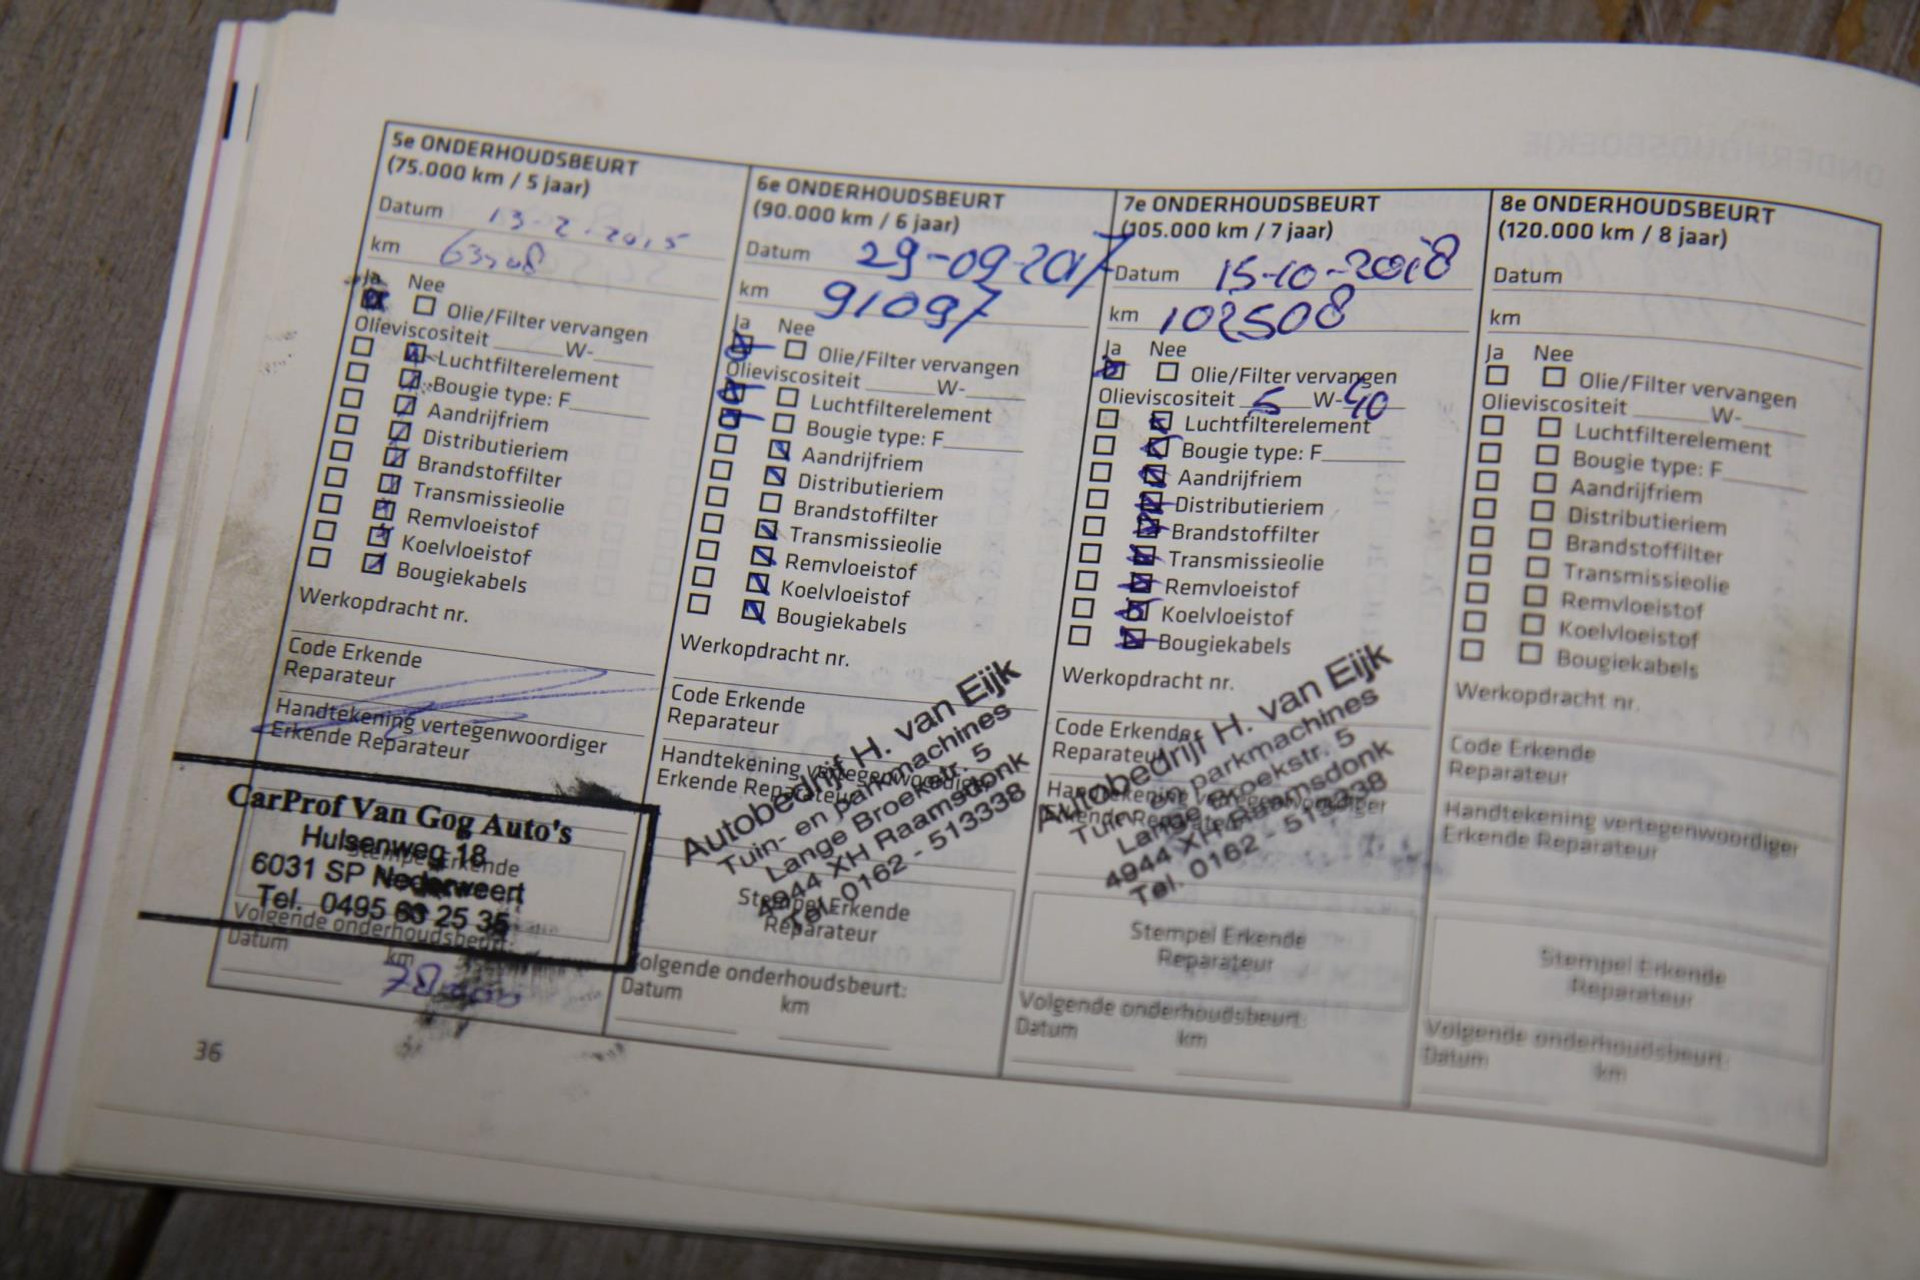 5e ONDERHOUDSBEURT
(75.000 km / 5 jaar)
Datum 13-2-2015
km
Ja Nee
Olie/Filter vervangen
Olieviscositeit W-
Luchtfilterelement
Bougie type: F
Aandrijfriem
Distributieriem
Brandstoffilter
Transmissieolie
Remvloeistof
Koelvloeistof
Bougiekabels
Werkopdracht nr.
Code Erkende
Reparateur
Handtekening vertegenwoordiger
Erkende Reparateur
CarProf Van Gog Auto's
Hulsenweg 18
6031 SP Nederweert
Tel. 0495 63 25 35
Erkende
Volgende onderhoudsbeurt:
Datum km
36
6e ONDERHOUDSBEURT
(90.000 km / 6 jaar)
Datum 29-09-2017
km 91097
Ja Nee
Olie/Filter vervangen
Olieviscositeit W-
Luchtfilterelement
Bougie type: F
Aandrijfriem
Distributieriem
Brandstoffilter
Transmissieolie
Remvloeistof
Koelvloeistof
Bougiekabels
Werkopdracht nr.
Code Erkende
Reparateur
Handtekening vertegenwoordiger
Erkende Reparateur
Autobedrijf H. van Eijk
Tuin- en parkmachines
Lange Broekstr. 5
4944 XH Raamsdonk
Tel. 0162 - 513338
Stempel Erkende
Reparateur
Volgende onderhoudsbeurt:
Datum km
7e ONDERHOUDSBEURT
(105.000 km / 7 jaar)
Datum 15-10-2018
km 102508
Ja Nee
Olie/Filter vervangen
Olieviscositeit 5 W-40
Luchtfilterelement
Bougie type: F
Aandrijfriem
Distributieriem
Brandstoffilter
Transmissieolie
Remvloeistof
Koelvloeistof
Bougiekabels
Werkopdracht nr.
Code Erkende
Reparateur
Handtekening vertegenwoordiger
Erkende Reparateur
Autobedrijf H. van Eijk
Tuin- en parkmachines
Lange Broekstr. 5
4944 XH Raamsdonk
Tel. 0162 - 513338
Stempel Erkende
Reparateur
Volgende onderhoudsbeurt:
Datum km
8e ONDERHOUDSBEURT
(120.000 km / 8 jaar)
Datum
km
Ja Nee
Olie/Filter vervangen
Olieviscositeit W-
Luchtfilterelement
Bougie type: F
Aandrijfriem
Distributieriem
Brandstoffilter
Transmissieolie
Remvloeistof
Koelvloeistof
Bougiekabels
Werkopdracht nr.
Code Erkende
Reparateur
Handtekening vertegenwoordiger
Erkende Reparateur
Stempel Erkende
Reparateur
Volgende onderhoudsbeurt:
Datum km